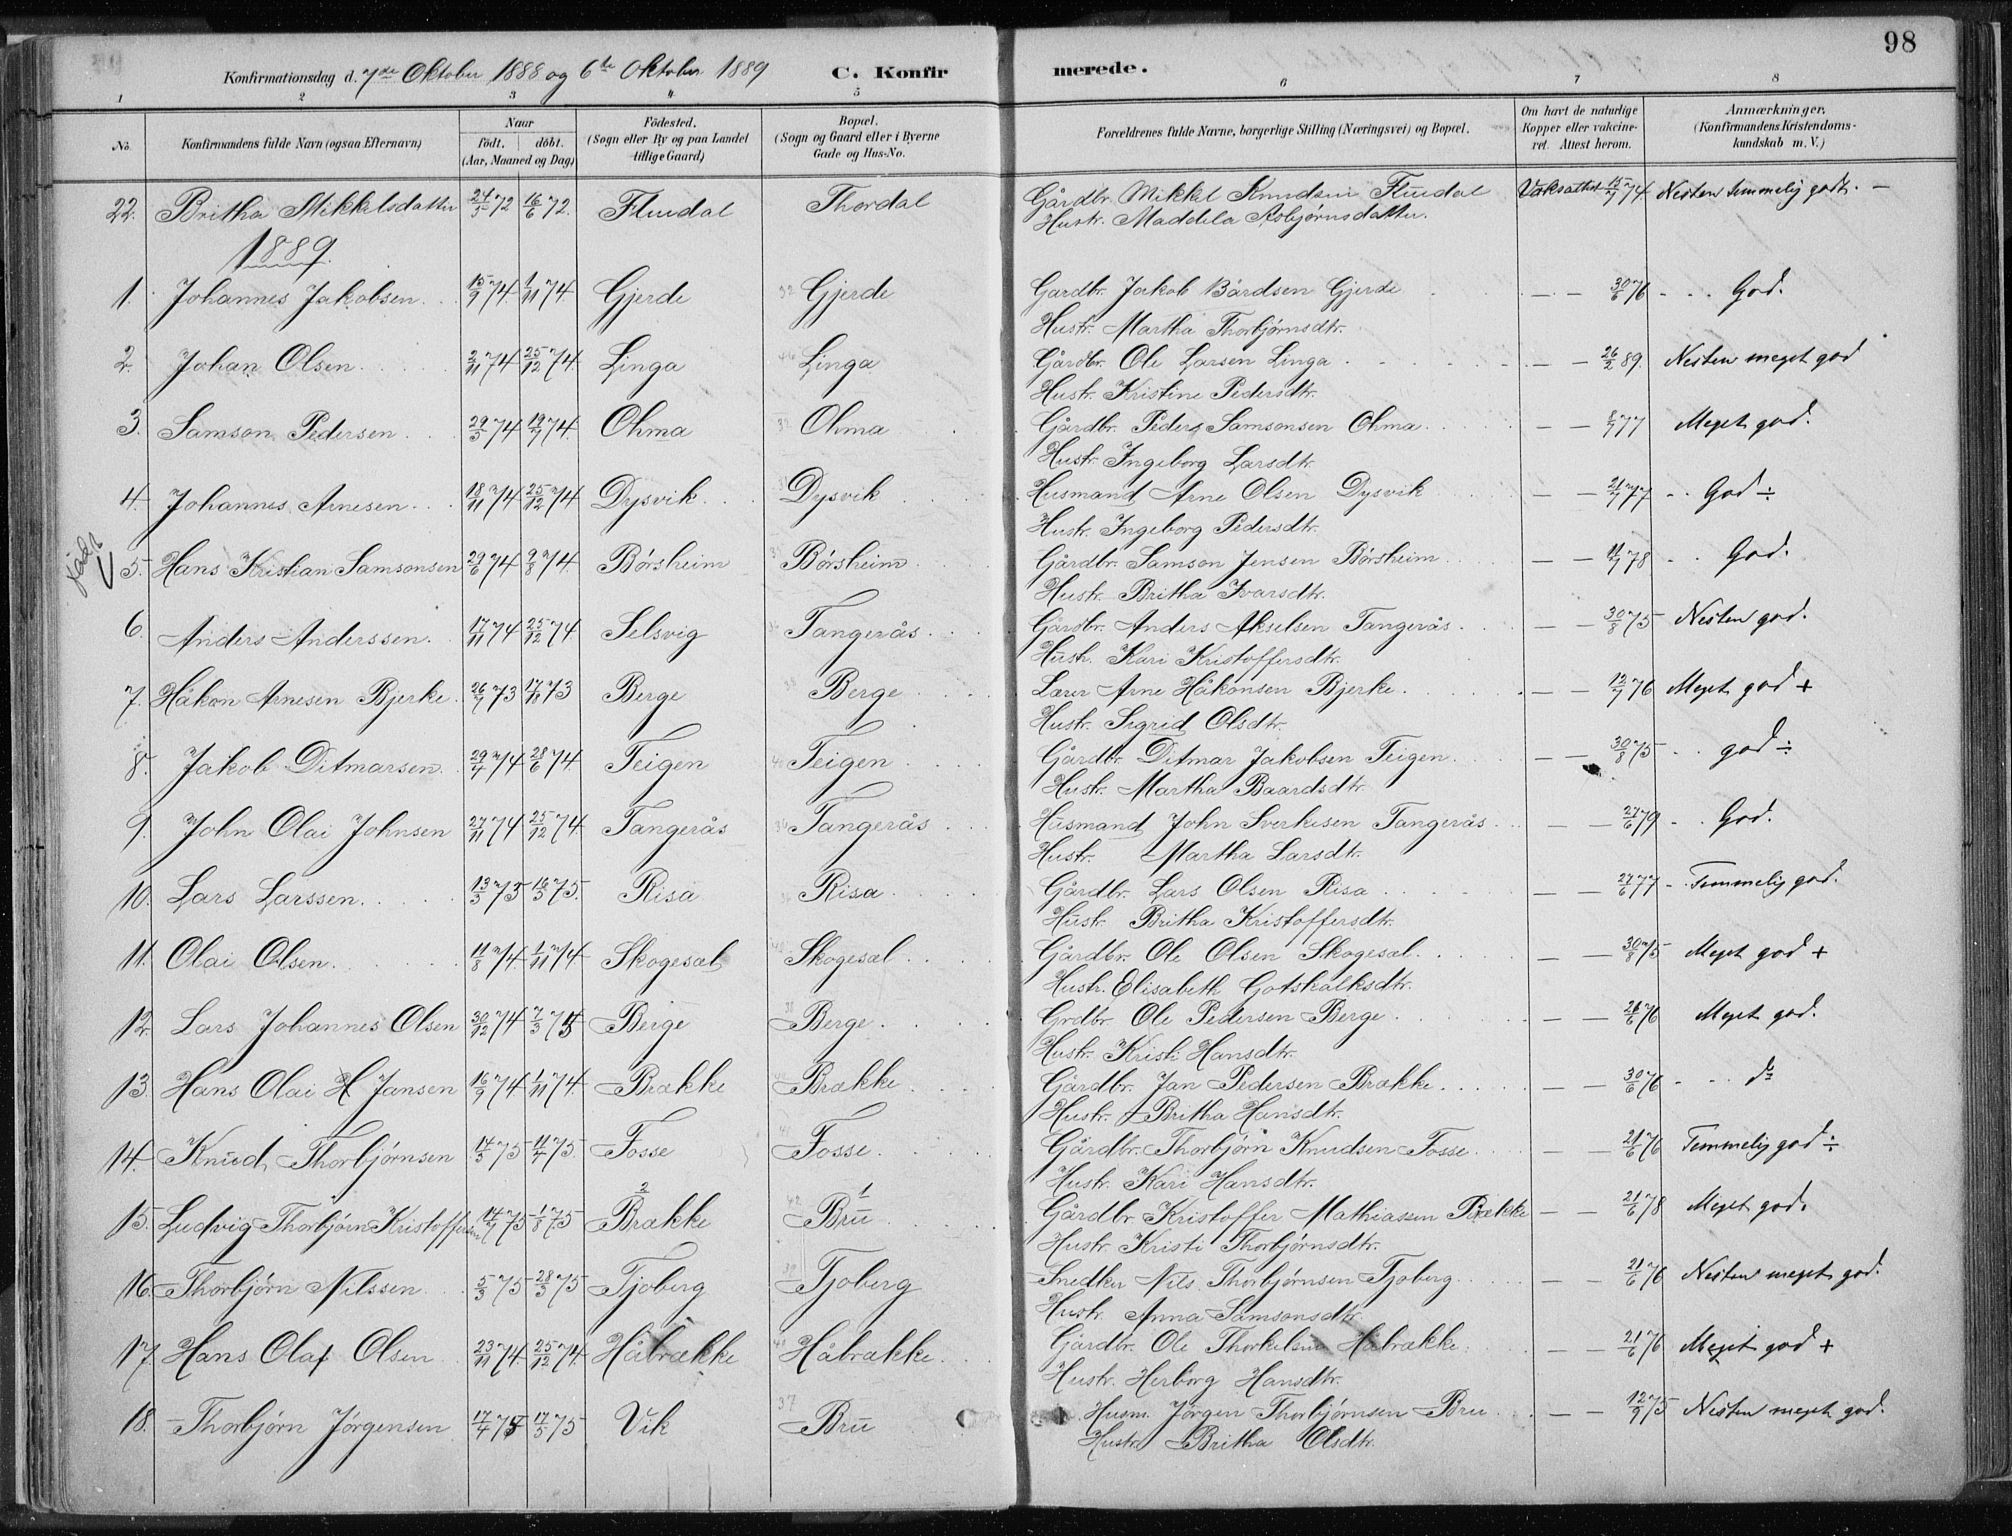 98
Konfirmationsdag d. 7de Oktober 1888 og 6te Oktober 1889 C. Konfirmerede.
1 2 3 4 5 6 7 8
No. Konfirmandens fulde Navn (ogsaa Efternavn) Naar født. døbt. (Aar, Maaned og Dag) Fødested. (Sogn eller By og paa Landet tillige Gaard) Bopæl. (Sogn og Gaard eller i Byerne Gade og Hus-No. Forældrenes fulde Navne, borgerlige Stilling (Næringsvei) og Bopæl. Om havt de naturlige Kopper eller vakcineret. Attest herom. Anmærkninger. (Konfirmandens Kristendomskundskab m. V.)
22. Britha Mikkelsdatter 24/5 72 16/6 72. Fludal Thordal Gårdbr. Mikkel Knudsen Fludal Vaksattest 15/7 74 Nesten temmelig godt. –
Hustr. Maddela Asbjørnsdatter.
1889.
1. Johannes Jakobsen 15/9 74 1/11 74 Gjerde 32 Gjerde Gardbr. Jakob Bårdsen Gjerde – – 30/6 76 God.
Hustr. Martha Thorbjørnsdtr.
2. Johan Olsen 2/11 74 25/12 74. Linga Linga Gårdbr. Ole Larsen Linga – – 26/2 89. Nesten meget god
Hustr. Kristine Pedersdtr.
3. Samson Pedersen 29/5 74 19/7 74. Ohma Ohma Gårdbr. Peder Samsonsen Ohma – – 8/7 77 Meget god.
Hustr. Ingeborg Larsdtr.
4. Johannes Arnesen 18/11 74 25/12 74 Dysvik Dysvik Husmand Arne Olsen Dysvik – – 21/7 77 God ÷
Hustr. Ingeborg Pedersdtr.
5. Hans Kristian Samsonsen 29/6 74 9/8 74. Børsheim Børsheim Gårdbr. Samson Jensen Børsheim – – 11/7 78 God.
Hustr. Britha Ivarsdtr.
6. Anders Anderssen 17/11 74 25/12 74. Selsvig Tangerås Gårdbr. Anders Akselsen Tangerås – – 30/8 75 Nesten god.
Hustr. Kari Kristoffersdtr.
7. Håkon Arnesen Bjerke 26/7 73 17/8 73 Berge Berge Lærer Arne Håkonsen Bjerke – – 12/7 76 Meget god +
Hustr. Sigrid Olsdtr.
8. Jakob Ditmarsen 29/4 74 28/6 74. Teigen Teigen Gårdbr. Ditmar Jakobsen Teigen – – 30/8 75 god ÷
Hustr. Martha Baardsdtr.
9. John Olai Johnsen 27/11 74 25/12 74. Tangerås Tangerås Husmand John Sverkesen Tangerås – – 27/6 79 God.
Hustr. Martha Larsdtr.
10. Lars Larssen 13/3 75 16/5 75. Risa Risa Gårdbr. Lars Olsen Risa – – 27/6 77 Temmelig god.
Hustr. Britha Kristoffersdtr.
11. Olai Olsen 11/8 74. 1/11 74 Skogesæl Skogesæl Gårdbr. Ole Olsen Skogesæl – – 30/8 75 Meget god +
Hustr. Elisabeth Gotskalksdtr.
12. Lars Johannes Olsen 30/12 74 7/3 75 Berge Berge Grdbr. Ole Pedersen Berge – – 21/6 76 Meget god.
Hustr. Kristi Hansdtr.
13. Hans Olai Jansen 16/9 74 1/11 74. Brække Brække Gårdbr. Jan Pedersen Brække – – 30/6 76 do
Hustr. Britha Hansdtr.
14. Knud Thorbjørnsen 14/3 75 11/4 75. Fosse Fosse Gårdbr. Thorbjørn Knudsen Fosse – – 21/6 76 Temmelig god ÷
Hustr. Kari Hansdtr.
2 1
15. Ludvig Thorbjørn Kristoffersen 14/7 75 1/8 75 Brække 42 Bru Gårdbr. Kristoffer Mathiassen Brække – – 21/6 78 Meget god.
Hustr. Kristi Thorbjørnsdtr.
16. Thorbjørn Nilssen 5/3 75 28/3 75 Tjoberg Tjoberg Snedker Nils Thorbjørnsen Tjoberg – – 21/6 76 Nesten meget god.
Hustr. Anna Samsonsdtr.
17. Hans Olaf Olsen 23/11 74 25/12 74. Håbrække Håbrække Gårdbr. Ole Thorkelsen Håbrække – – 21/6 76 Meget god +
Hustr. Herborg Hansdtr.
18. Thorbjørn Jørgensen 17/4 75 17/5 75 Vik 37 Bru Husm. Jørgen Thorbjørnsen Bru – – 12/9 75 Nesten meget god.
Hustr. Britha Olsdtr.